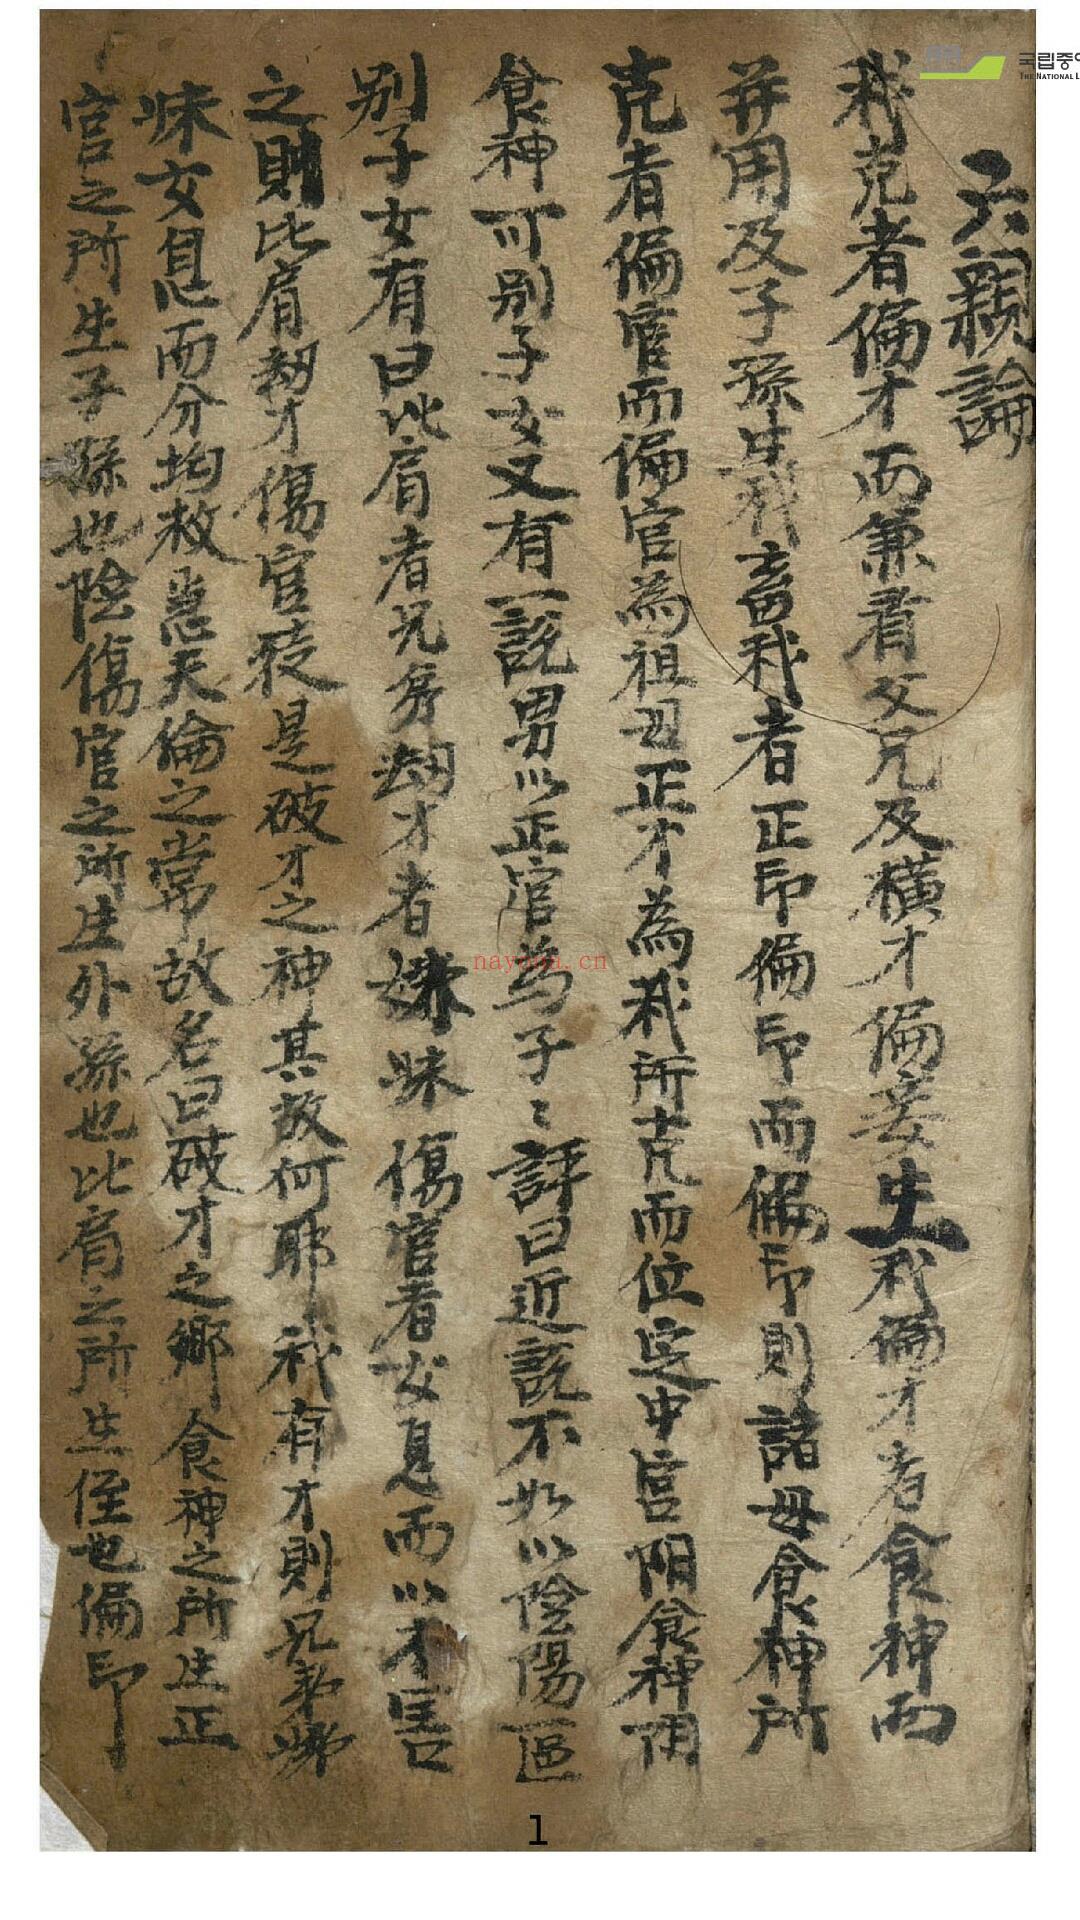 六親論
我克者偏才而兼看父兄及橫才偏妾生我偏才者食神而
并用及子孫生我畜我者正印偏印而偏印則諸母食神所
克者偏官而偏官為祖母正才為我所克而位定中宮陽食神陰
食神可別子女又有一說男以正官為子〻評曰近說不如以陰陽區
別子女有曰比肩者兄弟刼才者姊妹傷官者女息而以才害
之則比肩刼才傷官後是破才之神其故何耶我有才則兄弟姊
妹女息而分均救恶天倫之常故名曰破才之鄉食神之所生正
官之所生子孫也陰傷官之所生外孫也比肩之所生侄也偏印
국립중앙
THE NATIONAL L
nayona.cn
1